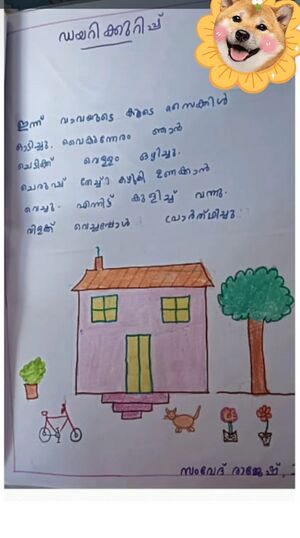 ഡയറിക്കുറിപ്പ്
ഇന്ന് വാവയുടെ കൂടെ സൈക്കിൾ
ഓടിച്ചു. വൈകുന്നേരം ഞാൻ
ചെടിക്ക് വെള്ളം ഒഴിച്ചു.
ചെരുപ്പ് തേച്ച് കഴുകി ഉണക്കാൻ
വെച്ചു. എന്നിട്ട് കുളിച്ച് വന്നു.
വിളക്ക് വെച്ചപ്പോൾ പ്രാർത്ഥിച്ചു.
സംവേദ് രാജേഷ്,